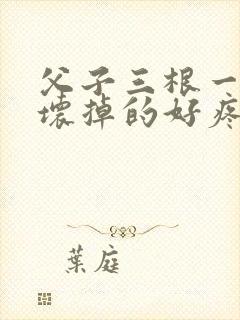 父子三根一
壞掉的好疼
葉庭